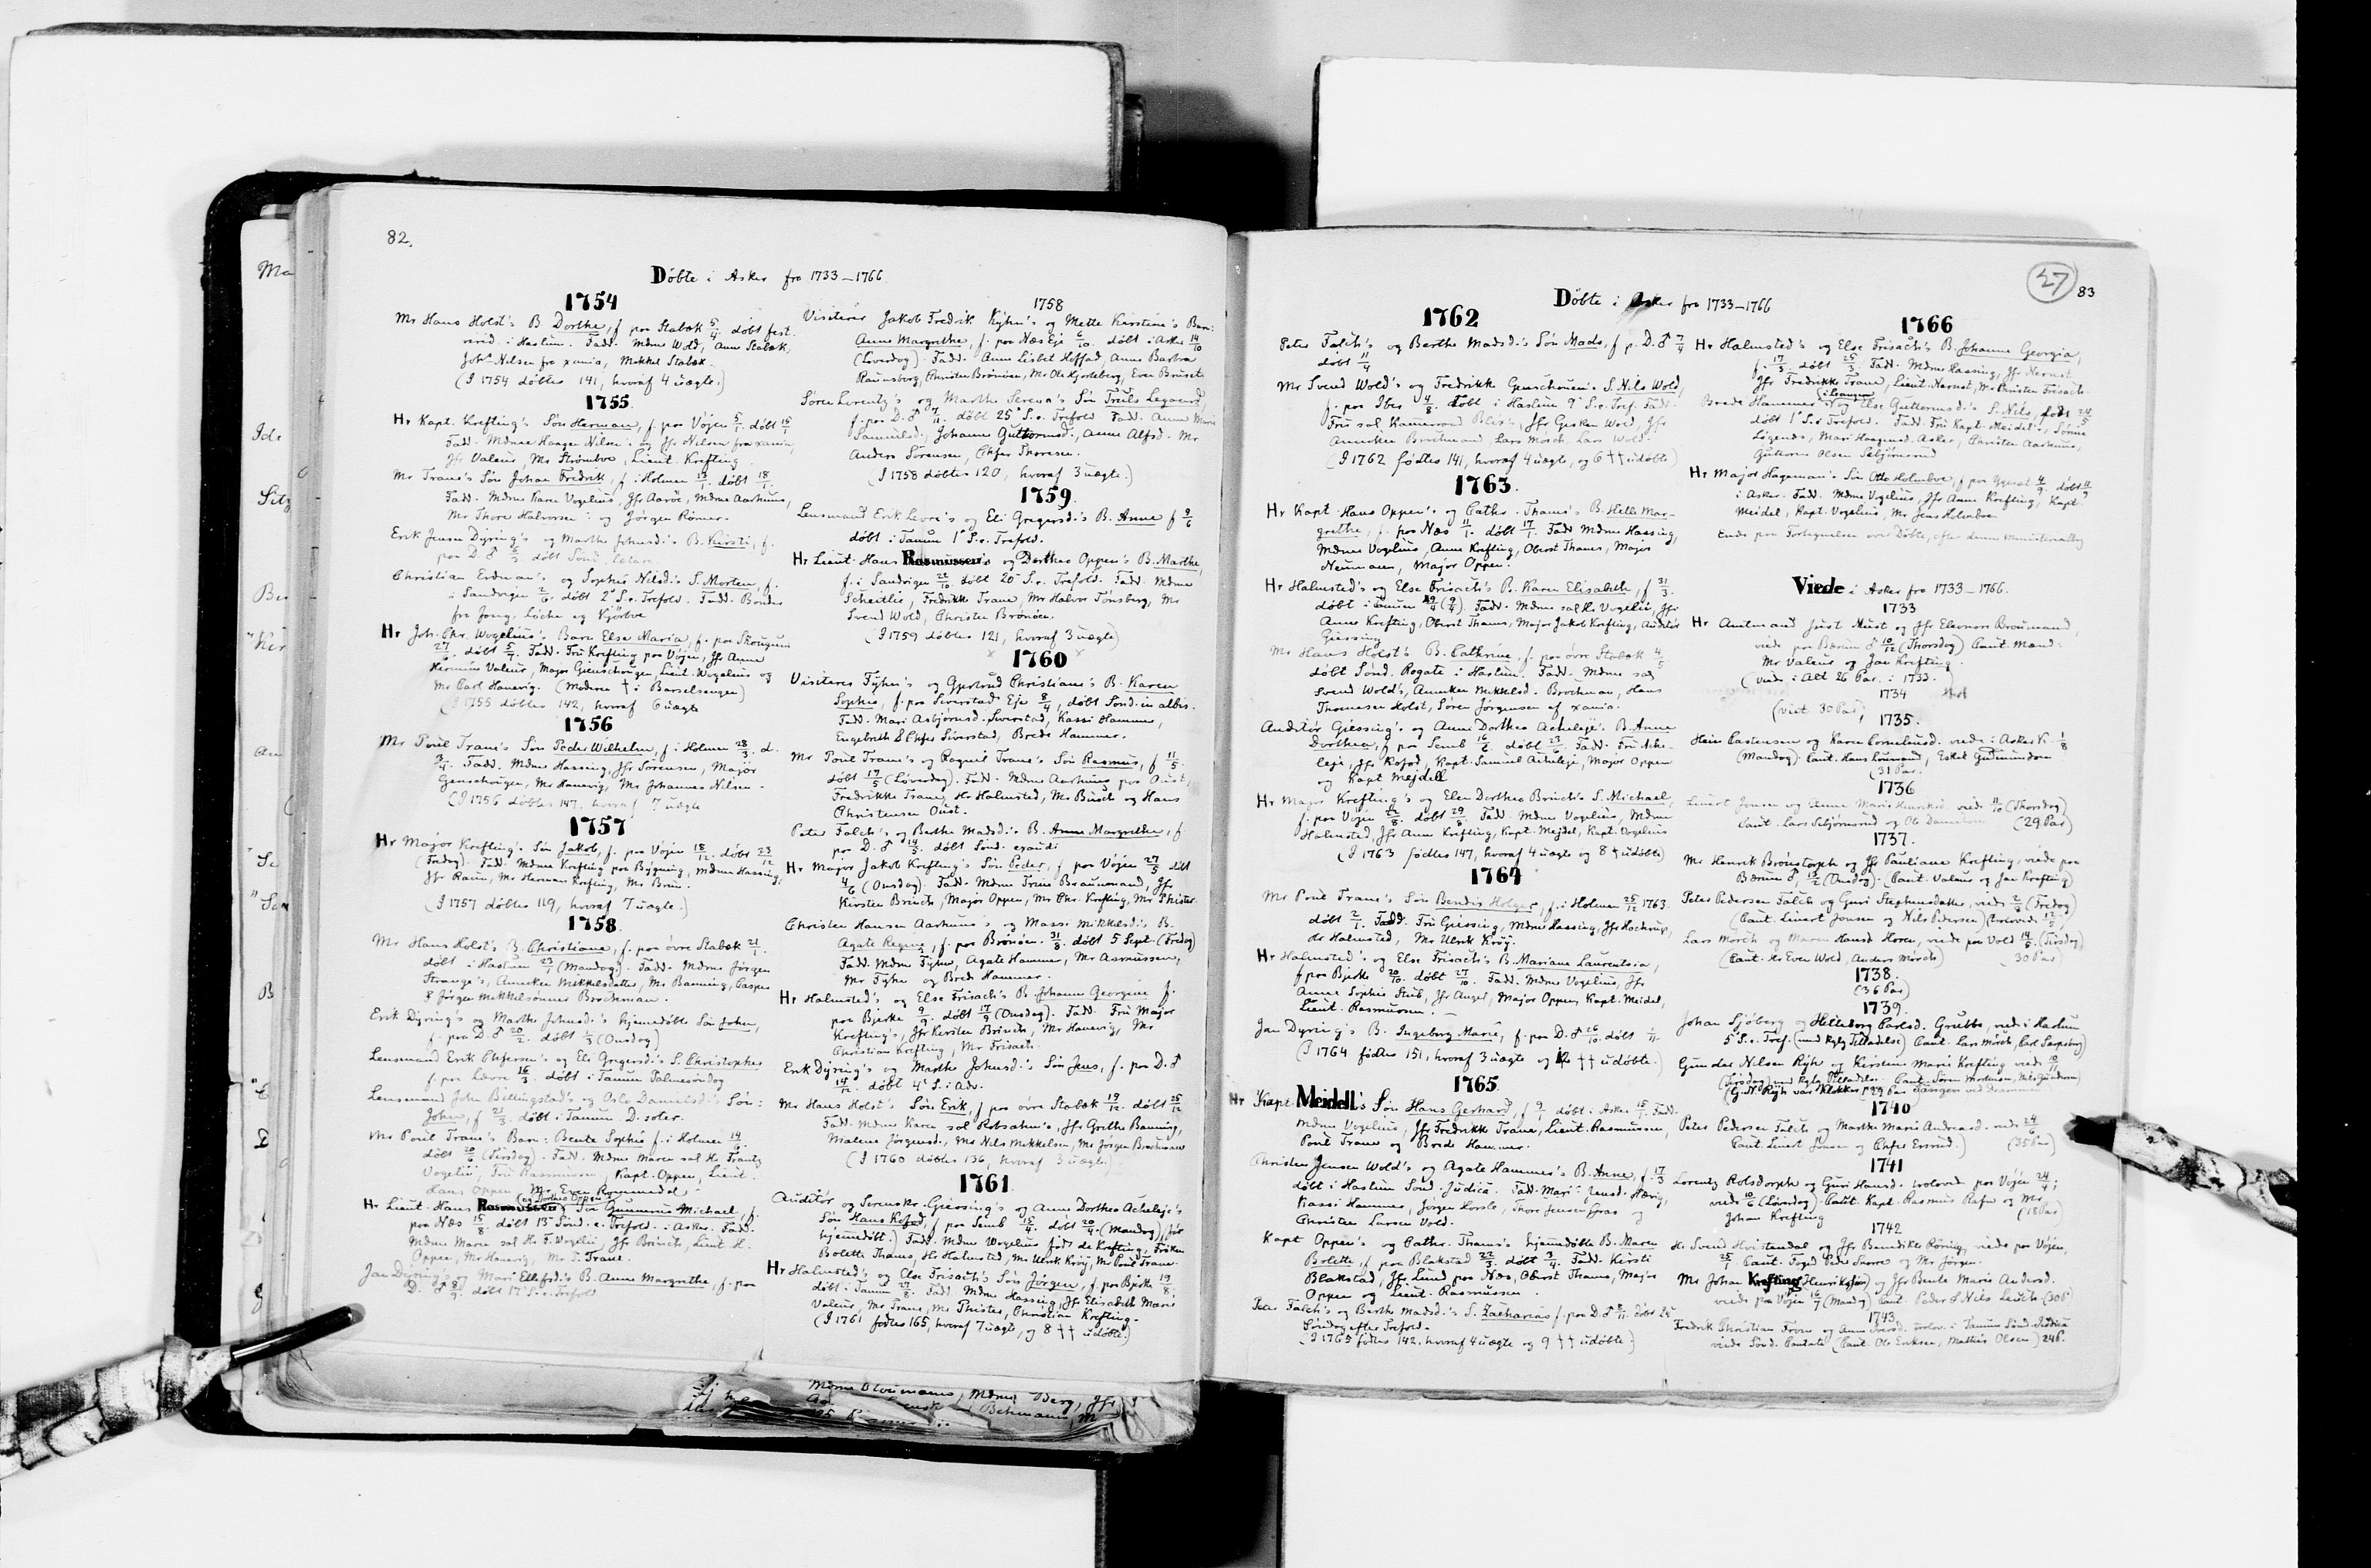 82.
Døbte i Asker fra 1733–1766
1754
Mr Hans Holst's B. Dorthe, f paa Stabæk 5/4 døbt fest.
i Haslum. Fadd. Mdme Wold, Anne Stabæk,
Joh. Nilsen fra xania, Mikkel Stabæk.
(I 1754 døbtes 141, hvoraf 4 uægte.)
1755
Hr Kapt. Krefting's Søn Herman, f. paa Vøjen 5/1. døbt 15/1
Fadd. Mdme Haagen Nilsen's og Jfr Nilsen fra xania,
Jfr Valeur, Mr Strømboe, Lieut. Krefting
Mr Trane's Søn Johan Fredrik, f. i Holmen 13/1. døbt 18/1.
Fadd. Mdme Karen Vogelius, Jfr Aarøe, Mdme Aarhuus,
Mr Thore Halvorsen og Jørgen Rømer.
Erik Jensen Dyring's og Marthe Johnsd.'s B. Kirsti, f.
paa D. ♂ døbt Sønd. letare.
Christian Erdman's og Sophie Nilsd.'s S. Morten, f.
i Sandvigen 2/6. døbt 2 S. e. Trefold. Fadd. Bønder
fra Jong, Løche og Kjørboe
Hr Joh. Chr. Wogelius's Barn Else Maria, f. paa Skougum
27/6. døbt 5/7. Fadd. Fru Krefting paa Vøjen, Jfr Anne
Valeur, Major Gienschougen, Lieut. Wogelius og
Mr Carl Hauevig. (Moderen † i Barselsengen)
(I 1755 døbtes 142, hvoraf 6 uægte
1756
Mr Poul Trane's Søn Peder Wilhelm, f i Holmen 28/3. d.
3/4. Fadd. Mdme Hassing, Jfr Sørensen, Major
Genschougen, Mr Hauevig, Mr Johannes Nilsen.
(I 1756 døbtes 147, hvoraf 7 uægte
1757
Hr Major Krefting's Søn Jakob, f. paa Vøjen 15/12. døbt 23/12
(Fredag). Fadd. Mdme Krefting paa Bygning, Mdme Hassing,
Jfr Raun, Mr Herman Krefting, Mr Brun.
(I 1757 døbtes 119, hvoraf 7 uægte.)
1758.
Mr Hans Holst's B. Christiane, f. paa øvre Stabæk 21/1.
døbt i Haslum 23/1 (Mandag). Fadd. Mdme Jørgen
Strange's, Anneken Mikkelsdatter, Mr Banning, Casper
& Jørgen Mikkelsønner Brochman.
Erik Dyring's og Marthe Johnsd.'s hjemmedøbte Søn John,
f. paa D. ♂ 20/2. døbt 1/3 (Onsdag)
Lensmand Erik Chfersen's og Eli Gregersd's S. Christopher
f. paa Løvre 16/3. døbt i Tanum Palmesøndag
Lensmand John Billingstad's og Osle Danielsd.'s Søn:
John, f 21/3. døbt i Tanum D. soler.
Mr Poul Trane's Barn: Bente Sophie f. i Holmen 14/6.
døbt 20/6 (Tirsdag). Fadd. Mdme Maren sal Hr Frantz
Vogelii, Fru Rasmussen, Kapt. Oppen, Lieut.
Hans Oppen, Mr Even Rommedal
Hr Lieut. Hans Rasmussen's (og Dorthea Oppen) Søn Gunnerus Michael, f.
paa Næs 15/8. døbt 13 Sønd. e. Trefold. i Asker. Fadd.
Mdme Maren sal Hr F. Vogelii, Jfr Brinch, Lieut H.
Oppen, Mr Hauevig, Mr. T. Trane.
Jan Dyring's og Mari Ellefsd.'s B. Anne Margrethe, f. paa
D. ♂ 8/9. døbt 17 S. e. Trefold
1758
Visiterer Jakob Fredrik Kyhn's og Mette Kirstine's Barn:
Anne Margrethe, f. paa Næs Eje 6/10. døbt i Asker 14/10
(Løverdag). Fadd. Anne Lisbet Hoffad, Anne Barbra
Raunsborg, Christen Brønøen, Mr Ole Kjorteberg, Even Bruset
Søren Lorentz's og Marthe Serena's Søn Truels Legaard,
f. paa D. ♂ 7/11. døbt 25 S. e. Trefold. Fadd. Anne Marie
Samuelsd., Johanne Guttormsd., Anne Alfsd. Mr
Anders Sørensen, Chfer Thoresen.
(I 1758 døbtes 120, hvoraf 3 uægte.)
1759.
Lensmand Erik Levre's og Eli Gregersd.'s B. Anne f 9/6
døbt i Tanum 1 S. e. Trefold.
Hr Lieut. Hans Rasmussen's og Dorthea Oppen's B. Marthe,
f. i Sandvigen 22/10. døbt 20 S. e. Trefold. Fadd. Mdme
Scheitlie, Fredrikke Trane, Mr Halvor Tønsberg, Mr
Svend Wold, Christen Brønøen.
(I 1759 døbtes 121, hvoraf 3 uægte)
1760
Visiteres Fyhn's og Gjertrud Christians's B. Karen
Sophie, f. paa Siverstad Eje 8/4, døbt Sønd. in albis.
Fadd. Mari Asbjørnsd. Siverstad, Kassi Hammer,
Engebreth & Chfer Siverstad, Brede Hammer.
Mr Poul Trane's og Raquil Trane's Søn Rasmus, f 11/5.
døbt 17/5 (Løverdag). Fadd. Mdme Aarhuus paa Oust,
Fredrikke Trane, Hr Halmsted, Mr Busch og Hans
Christensen Oust.
Peter Falch's og Berthe Madsd.'s B. Anne Margrethe, f
paa D. ♂ 14/5. døbt Sønd. exaudi
Hr Major Jakob Krefting's Søn Peder, f paa Vøjen 27/5 døbt
4/6 (Onsdag). Fadd. Mdme Trine Braunmand, Jfr
Kirsten Brinch, Major Oppen, Mr Chr. Krefting, Mr Phister
Christen Hansen Aarhuus's og Massi Mikkelsd.'s B.
Agate Regine, f. paa Brønøen. 31/8. døbt 5 Sept. (Fredag)
Fadd. Mdme Fyhn, Agate Hammer, Mr Asmussen,
Mr Fyhn og Brede Hammer.
Hr Halmsted's og Else Frisach's B. Johanne Georgine f.
paa Bjerke 9/9. døbt 17/9 (Onsdag). Fadd. Fru Major
Krefting's, Jfr Kirsten Brinch, Mr Hauevig, Mr
Christian Krefting, Mr Frisach.
Erik Dyring's og Marthe Johnsd.'s Søn Jens, f. paa D. ♂
14/12. døbt 4 S. i Adv.
Mr Hans Holst's Søn Erik, f paa øvre Stabæk 19/12. døbt 25/12
Fadd. Mdme Karen sal Robsahm's, Jfr Grethe Banning,
Malene Jørgensd., Mr Nils Mikkelsen, Mr Jørgen Brochman
(I 1760 døbtes 136, hvoraf 3 uægte.)
1761
Auditør og Sorenskr. Giessing's og Anne Dorthea Acheleje's
Søn Hans Kofod, f paa Semb 15/4. døbt 20/4. (Mandag) (før
hjemmedøbt.) Fadd. Mdme Wogelius født de Krefting, Frøken
Bolette Thams, Hr Halmsted, Mr Ulrik Krøy, Mr Poul Trane.
Hr Halmsted's og Else Frisach's Søn Jørgen, f paa Bjerke 19/8.
døbt i Tanum 27/8. Fadd Mdme Hassing, Jfr Elisabeth Marie
Valeur, Mr Trane, Mr Phister, Christian Krefting.
(I 1761 fødtes 165, hvoraf 7 uægte, og 8 †† udøbte.)
47
83
Døbte i Asker fra 1733–1766
1762
Peter Falch's og Berthe Madsd.'s Søn Mads, f p. D. ♂ 7/4
døbt 11/4
Mr Svend Wold's og Fredrikke Genschouen's S. Nils Wold,
f. paa Ibes 4/8. døbt i Haslum 9 S. e. Tref. Fadd.
Fru sal Kammerraad Blix's, Jfr Gesken Wold, Jfr
Anneken Brochmand, Lars Mørch, Lars Wold.
(I 1762 fødtes 141, hvoraf 4 uægte, og 6 †† udøbte)
1763.
Hr Kapt. Hans Oppen's og Cathr. Thams's B. Helle Mar-
grethe, f. paa Næs 11/1. døbt 17/1. Fadd Mdme Hassing,
Mdme Vogelius, Anne Krefting, Oberst Thams, Major
Neumann, Major Oppen.
Hr Halmsted's og Else Frisach's B. Karen Elisabeth, f 31/3.
døbt i Tanum (9/4). Fadd. Mdme sal Hr Vogelii, Jfr
Anne Krefting, Oberst Thams, Major Jakob Krefting, Auditør
Giessing
Mr Hans Holst's B. Cathrine, f. paa øvre Stabæk 4/5
døbt Sønd. Rogate i Haslum. Fadd. Mdme sal
Svend Wold's, Anneken Mikkelsd. Brochman, Hans
Thomesen Holst, Søren Jørgensen af xania.
Auditør Giessing's og Anne Dorthea Acheleje's B. Anne
Dorthea, f paa Semb 16/6. døbt 23/6. Fadd. Fru Ache-
leje, Jfr Kofod, Kapt. Samuel Acheleje, Major Oppen
og Kapt Mejdell
Hr Major Krefting's og Elen Dorthea Brinch's S. Michael,
f. paa Vøjen 22/8. døbt 29/8. Fadd. Mdme Vogelius, Mdme
Halmsted, Jfr Anne Krefting, Kapt. Mejdel, Kapt. Vogelius
(I 1763 fødtes 147, hvoraf 4 uægte og 8 † udøbte)
1764
Mr Poul Trane's Søn Bendix Holger, f. i Holmen 25/12 1763.
døbt 2/1. Fadd. Fru Giessing, Mdme Hassing, Jfr Hochrup,
Hr Halmsted, Mr Ulrik Krøy.
Hr Halmsted's og Else Frisach's B. Mariane Laurentsia,
f paa Bjerke 20/10. døbt 27/10. Fadd. Mdme Vogelius, Jfr
Anne Sophie Stub, Jfr Angel, Major Oppen, Kapt. Meidel,
Lieut. Rasmussen.
Jan Dyring's B. Ingeborg Marie, f. paa D. ♂ 26/10. døbt 1/11.
(I 1764 fødtes 151, hvoraf 3 uægte og 12 †† udøbte.)
1765
Hr Kapt. Meidell's Søn Hans Gerhard, f 9/1 døbt i Asker 15/1. Fadd.
Mdme Vogelius, Jfr Fredrikke Trane, Lieut. Rasmussen,
Poul Trane og Brede Hammer.
Christen Jensen Wold's og Agate Hammer's B. Anne, f. 17/3
døbt i Haslum Sønd. Judica. Fadd. Mari Jensd. Hærig,
Kassi Hammer, Jørgen Horsle, Thore Jensen Gras og
Christen Larsen Vold.
Kapt Oppen's og Cathr. Thams's hjemmedøbte B. Maren
Bolette, f paa Blakstad 22/3. døbt 3/4. Fadd. Kirsti
Blakstad, Jfr Lund paa Næs, Oberst Thams, Major
Oppen og Lieut. Rasmussen.
Peter Falch's og Berthe Madsd.'s S. Zacharias f. paa D. ♂ døbt 25
Søndag efter Trefold.
(I 1765 fødtes 142, hvoraf 4 uægte og 9 †† udøbte)
1766
Hr Halmsted's og Else Frisach's B. Johanne Georgia,
f. 17/3. døbt 25/3. Fadd. Mdme Hassing, Jfr Nernst
Jfr Fredrikke Trane, Lieut. Nernst, Mr Christen Frisach.
Brede Hammer's og Else Guttormsd.'s S. Nils, født 24/5
døbt 1 S. e. Trefold. Fadd. Fru Kapt. Meidel's, Sønne
Løgends, Mari Haagensd. Asker, Christen Aarhuus,
Guttorm Olsen Sebjørnsrud
Hr Major Hageman's Søn Otto Holmboe, f paa 4/9. døbt 11/9
i Asker. Fadd. Mdme Vogelius, Jfr Anne Krefting, Kapt.
Meidel, Kapt. Vogelius, Mr Jens Holmboe
Ende paa Fortegnelsen over Døbte, efter denne Ministerialbog
Viede i Asker fra 1733–1766.
1733
Hr Amtmand Just Must og Jfr Eleonore Broumand,
viede paa Bærum ♂ 10/12 (Thorsdag) Caut. Mænd:
Mr Valeur og Jan Krefting.
(viede i Alt 26 Par. i 1733.)
1734
(viet 30 Par)
1735.
Hein Carstensen og Karen Cornelusd. viede i Asker K. 1/8
(Mandag) Caut. Hans Louvand, Eskel Gudmundsen
(31 Par.
1736
Linert Jonsen og Anne Marie Henriksd viede 11/10 (Thorsdag)
Caut. Lars Sebjørnsrud og Ole Danielsen (29 Par)
1737.
Mr Henrik Brønstorph og Jfr Pauliane Krefting, viede paa
Bærum ♂, 13/2 (Onsdag). (Caut. Valeur og Jan Krefting)
Peter Pedersen Falch og Guri Stephensdatter, viede 2/8 (Fredag)
(Caut. Linert Jonsen og Nils Pedersen) (trolovede 12/5)
Lars Mørch og Maren Hansd Horn, viede paa Vold 14/5. (Tirsdag)
(Caut. Hr Even Wold, Anders Mørch) 30 Par)
1738.
(36 Par)
1739.
Johan Sjøberg og Hilleborg Carlsd. Grubbe, viede i Haslum
5 S. e. Tref. (med Kglg Tilladelse) Caut. Lars Mørch, Carl Sarpsborg)
Gunder Nilsen Ryh og Kirsten Marie Krefting viede 10/11
(Tirsdag) med Kglg Tilladelse. Caut. Søren Mortensen, Nils Gundersen)
(G. N. Ryh var Klokker) 29 Par
1740
Peter Pedersen Falch og Marthe Marie Andreasd. viede 24/6
Caut. Linert Jonsen og Chfer Ersrud.) (35 Par)
1741
Lorentz Rolsdorph og Guri Hansd. trolovede paa Vøjen 24/4;
viede 10/6 (Løverdag) Caut. Kapt. Rasmus Rafn og Mr
Johan Krefting (18 Par)
1742
Hr Svend Hvistendal og Jfr Benedikte Røring, viede paa Vøjen,
25/1 Caut. Foged Peder Snorre og Mr Jørgen.
Mr Johan Krefting (Henrikssøn) og Jfr Bente Marie Andersd.
viede paa Vøjen 16/7 (Mandag) Caut. Peder & Nils Leuch (30 P.)
1743
Fredrik Christian From og Anne Iversd. trolov. i Tanum Sønd. Judica
viede Sønd. Cantate (Caut. Ole Eriksen, Mathis Olsen) 24 P.